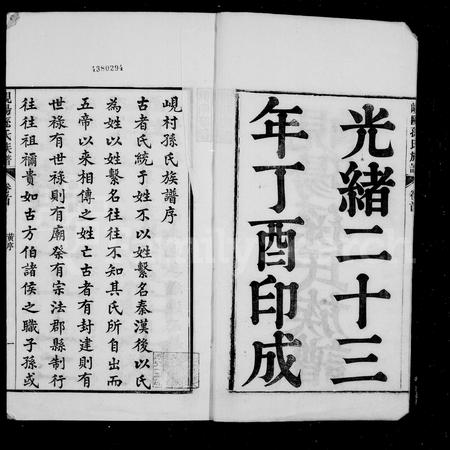 4380294
光緒二十三
年丁酉印成
峴村孫氏族譜序
古者氏統于姓不以姓繫名秦漢後以氏
為姓以姓繫名往往不知其氏所自出而
五帝以來相傳之姓亡古者有封建則有
世祿有世祿則有廟祭有宗法郡縣制行
往往祖禰貴如古方伯諸侯之職子孫或
卷首
黃序
一